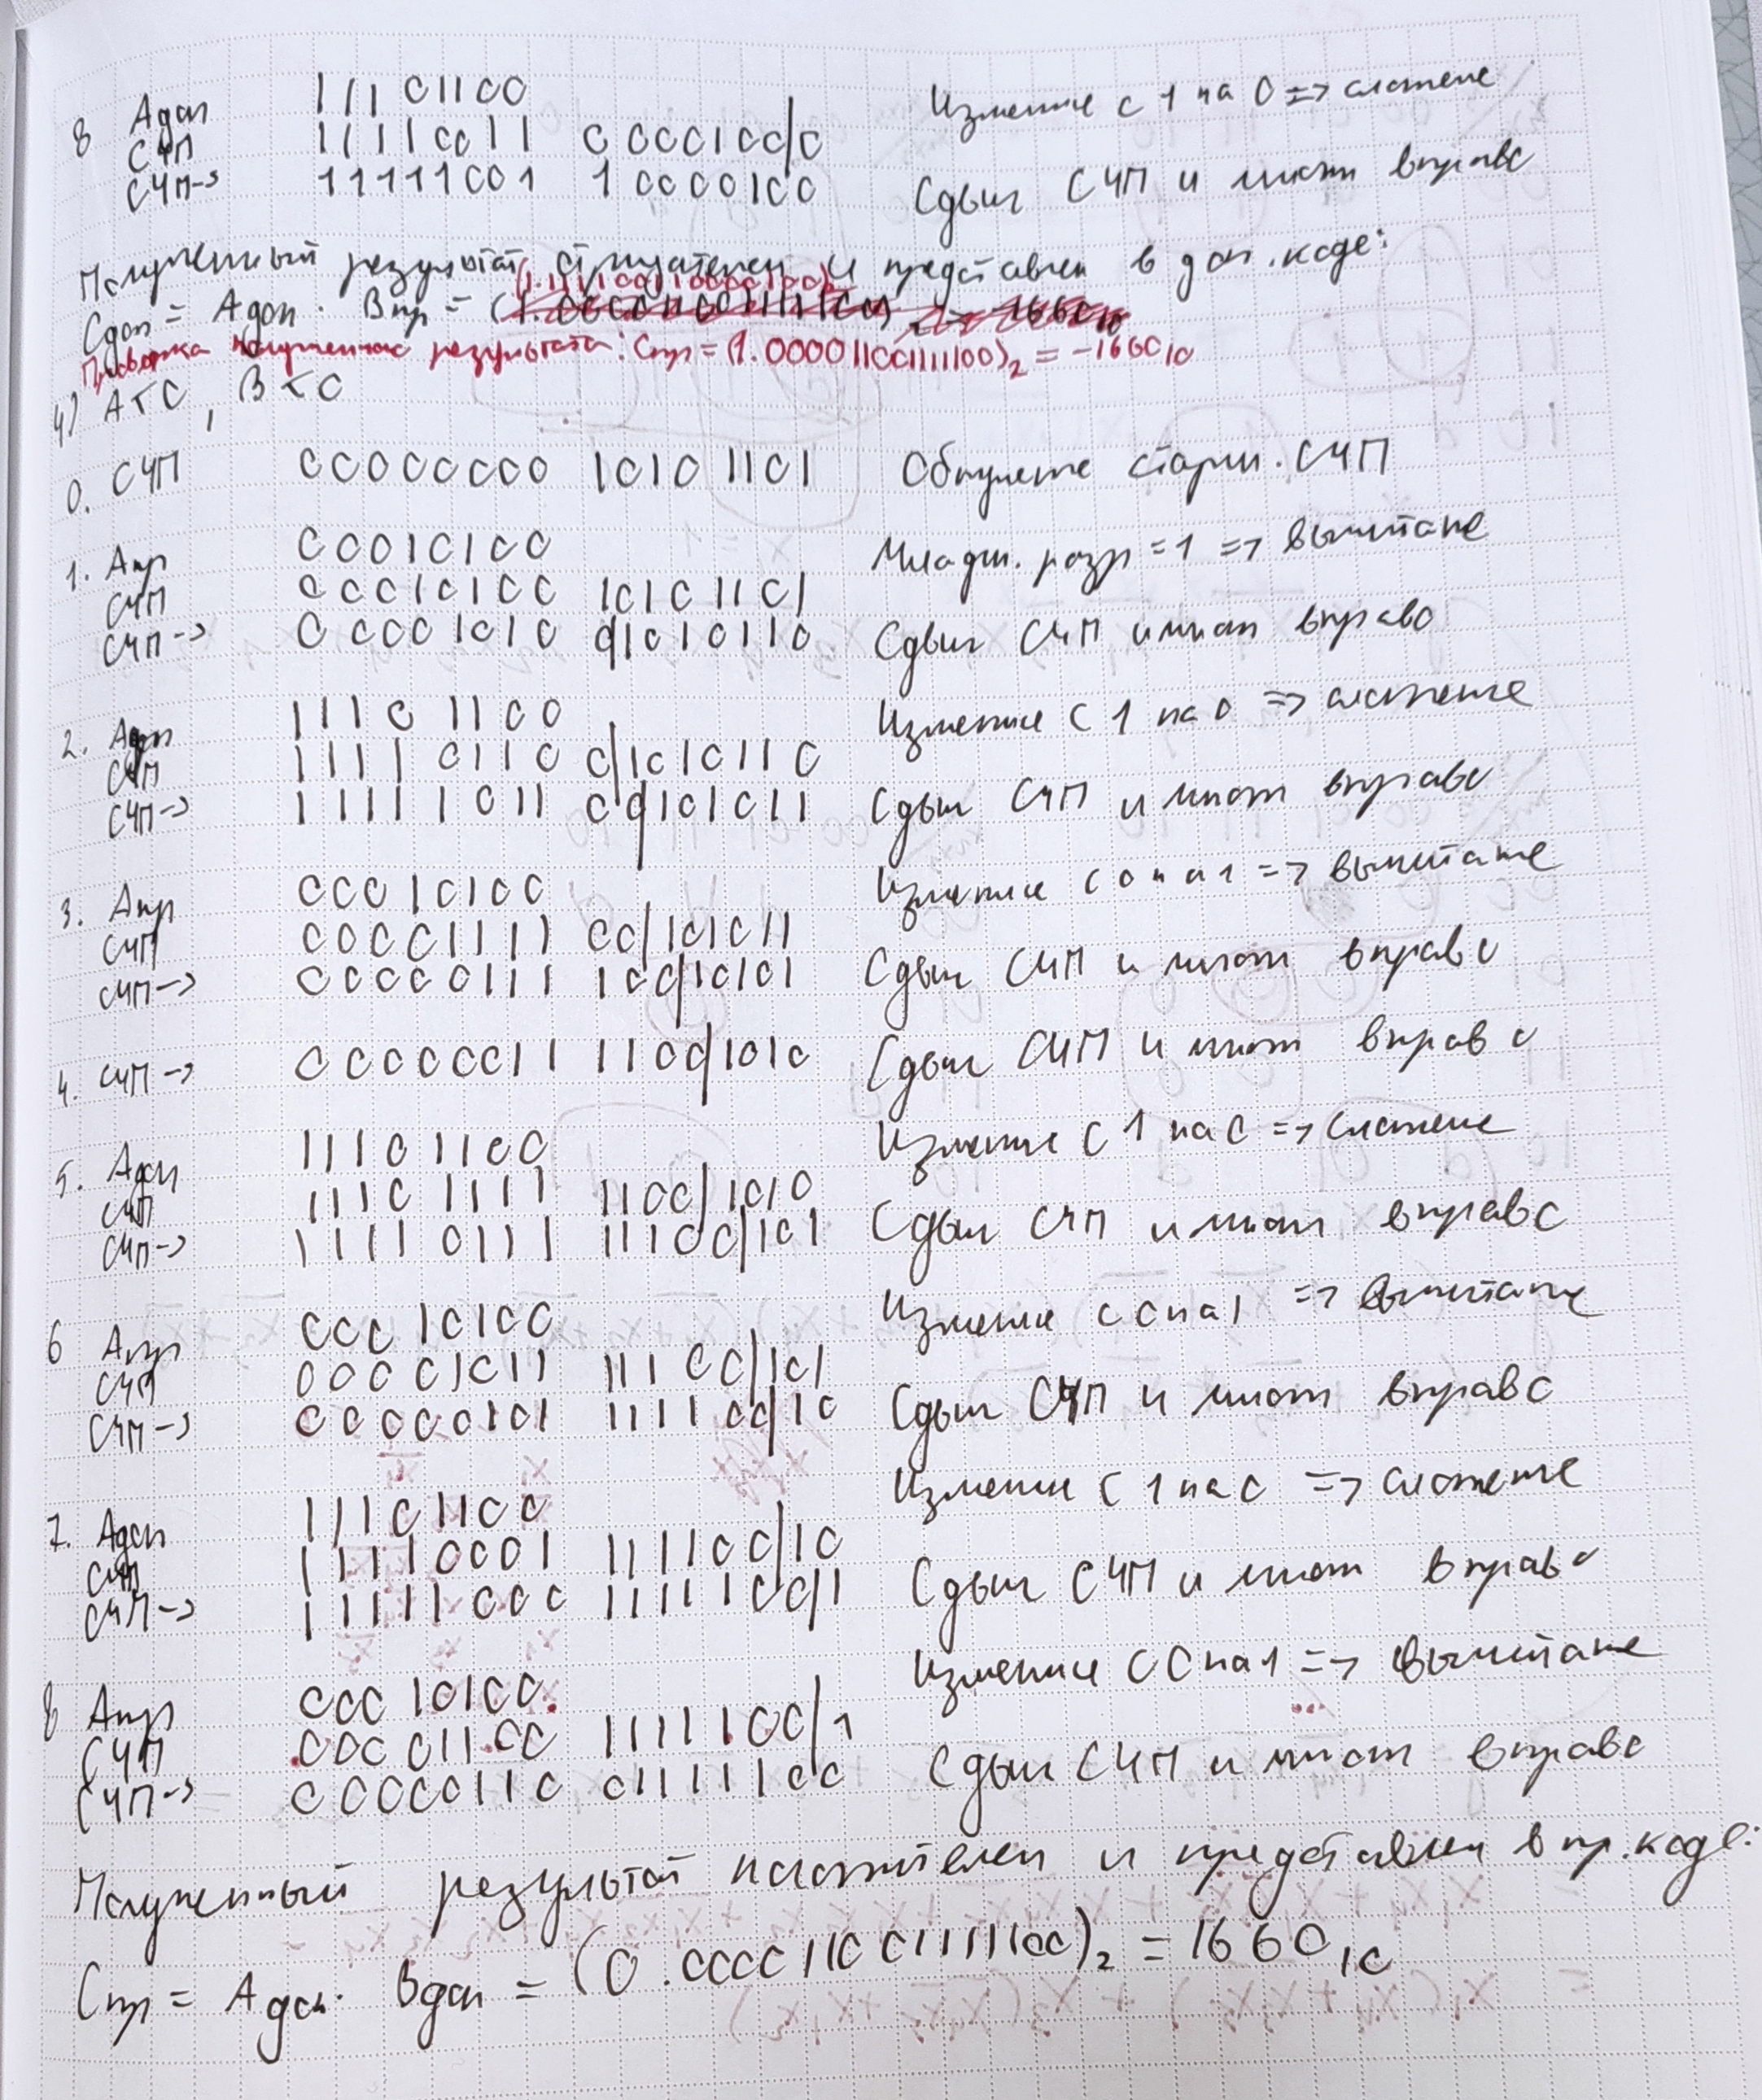 8 Aдоп 11101100 Изменение с 1 на 0 => сложение
СЧП 11110011 0000100|0
СЧП-> 11111001 10000100 Сдвиг СЧП и множ вправо
Полученный результат отрицателен и представлен в доп.коде:
(1.111100110000100)₂
Cдоп = Aдоп · Bпр =
Проверка полученного результата: Cпр = (1.000011001111100)₂ = -1660₁₀
4) A<0, B<0
0. СЧП 00000000 10101101 Обнуление старш. СЧП
1. Aпр 00010100 Младш. разр = 1 => вычитание
СЧП 00010100 10101101
СЧП-> 00001010 0|1010110 Сдвиг СЧП и множ вправо
2. Aдоп 11101100 Изменение с 1 на 0 => сложение
СЧП 11110110 0|1010110
СЧП-> 11111011 00|101011 Сдвиг СЧП и множ вправо
3. Aпр 00010100 Изменение с 0 на 1 => вычитание
СЧП 00001111 00|101011
СЧП-> 00000111 100|10101 Сдвиг СЧП и множ вправо
4. СЧП-> 00000011 1100|1010 Сдвиг СЧП и множ вправо
5. Aдоп 11101100 Изменение с 1 на 0 => сложение
СЧП 11101111 1100|1010
СЧП-> 11110111 11100|101 Сдвиг СЧП и множ вправо
6 Aпр 00010100 Изменение с 0 на 1 => вычитание
СЧП 00001011 11100|101
СЧП-> 00000101 111100|10 Сдвиг СЧП и множ вправо
7. Aдоп 11101100 Изменение с 1 на 0 => сложение
СЧП 11110001 111100|10
СЧП-> 11111000 1111100|1 Сдвиг СЧП и множ вправо
8 Aпр 00010100 Изменение с 0 на 1 => вычитание
СЧП 00001100 1111100|1
СЧП-> 00000110 01111100 Сдвиг СЧП и множ вправо
Полученный результат положителен и представлен в пр.коде:
Cпр = Aдоп · Bдоп = (0.000011001111100)₂ = 1660₁₀